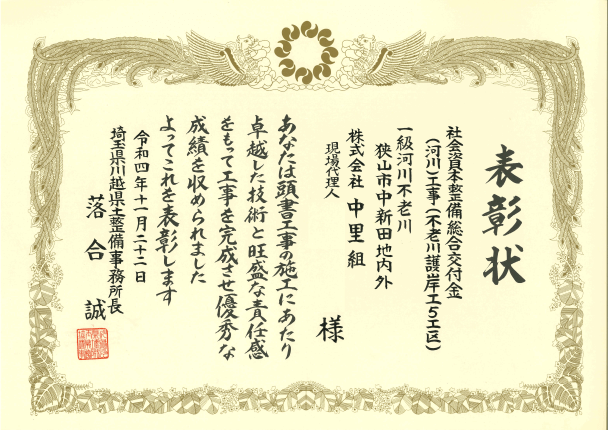 表彰状
社会資本整備総合交付金
(河川)工事(不老川護岸工5工区)
一級河川不老川
狭山市中新田地内外
株式会社 中里組
現場代理人
様
あなたは頭書工事の施工にあたり
卓越した技術と旺盛な責任感
をもって工事を完成させ優秀な
成績を収められました
よってこれを表彰します
令和四年十一月二十二日
埼玉県川越県土整備事務所長
落合 誠